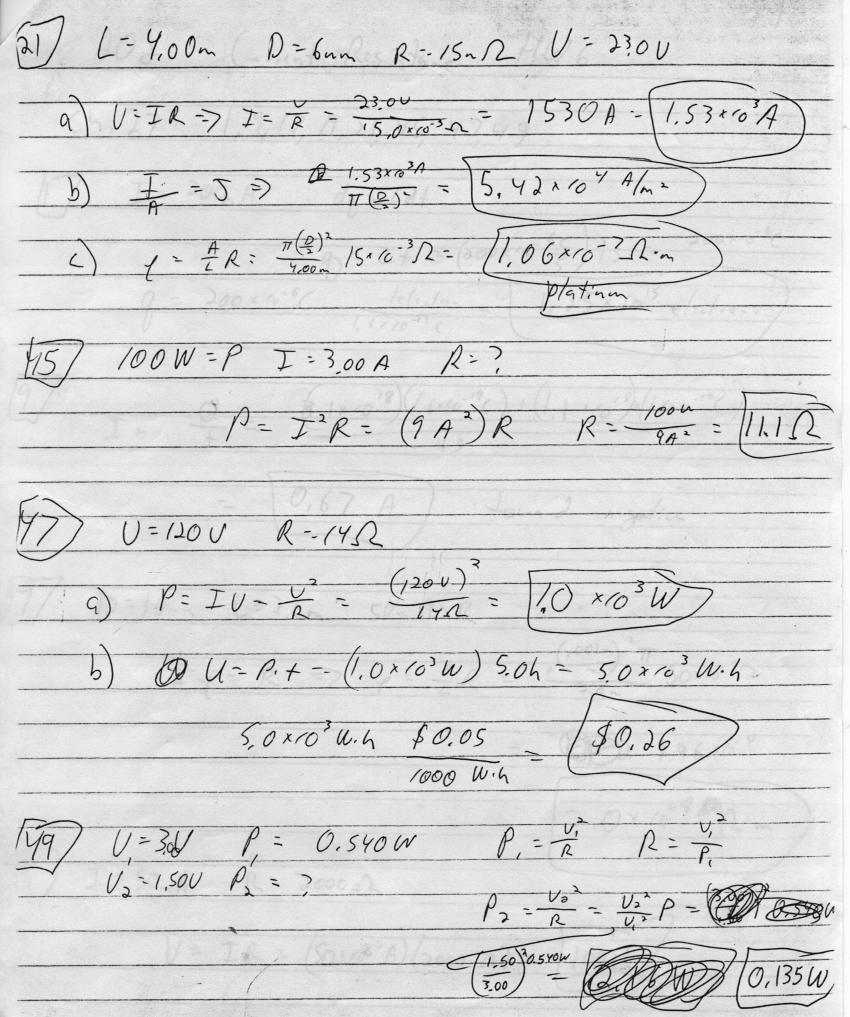 21 L = 4.00m D = 6mm R = 15mΩ V = 23.0V
a) V = IR => I = V/R = 23.0V / 15.0×10⁻³Ω = 1530A = 1.53×10³A
b) I/A = J => 1.53×10³A / π(D/2)² = 5.42×10⁷ A/m²
c) ρ = A/L R = π(D/2)² / 4.00m 15×10⁻³Ω = 1.06×10⁻⁷Ω·m
platinum
45 100W = P I = 3.00A R = ?
P = I²R = (9A²)R R = 100W / 9A² = 11.1Ω
47 V = 120V R = 14Ω
a) P = IV = V²/R = (120V)² / 14Ω = 1.0 ×10³W
b) U = P·t = (1.0×10³W) 5.0h = 5.0×10³ W·h
5.0×10³ W·h $0.05 / 1000 W·h = $0.26
49 V₁ = 3.00V P₁ = 0.540W P₁ = V₁²/R R = V₁²/P₁
V₂ = 1.50V P₂ = ?
P₂ = V₂²/R = V₂²/V₁² P =
(1.50/3.00)² 0.540W = 0.135W